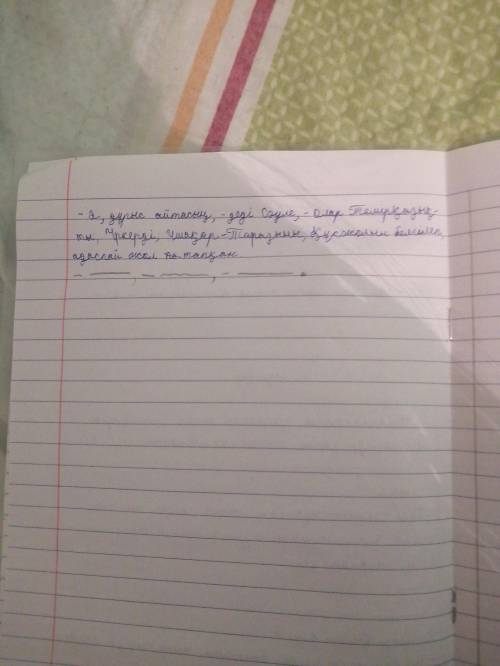 - Ә, дұрыс айтасың, - деді Сәуле, - олар Темірқазық-
ты, Үркерді, Үшарқар-Таразыны, Құсжолын бағдарлап,
адаспай жол тапқан.
- ―――, - ―――, - ――― .